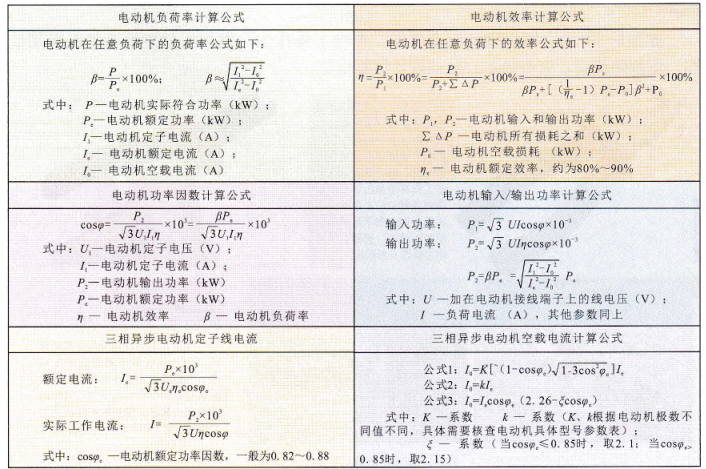 电动机负荷率计算公式
电动机在任意负荷下的负荷率公式如下：
β=P/Pₑ×100%； β≈√((I₁²−I₀²)/(Iₑ²−I₀²))
式中： P—电动机实际符合功率（kW）；
Pₑ—电动机额定功率（kW）；
I₁—电动机定子电流（A）；
Iₑ— 电动机额定电流（A）；
I₀— 电动机空载电流（A）
电动机效率计算公式
电动机在任意负荷下的效率公式如下：
η=P₂/P₁×100%=P₂/(P₂+∑ΔP)×100%=βPₑ/(βPₑ+[(1/ηₑ−1)Pₑ−P₀]β²+P₀)×100%
式中：P₁，P₂—电动机输入和输出功率（kW）；
∑ΔP —电动机所有损耗之和（kW）；
P₀ — 电动机空载损耗 （kW）；
ηₑ — 电动机额定效率，约为80%～90%
电动机功率因数计算公式
cosφ=P₂/(√3U₁I₁η)×10³=βPₑ/(√3U₁I₁η)×10³
式中：U₁—电动机定子电压（V）；
I₁—电动机定子电流（A）；
P₂—电动机输出功率（kW）
Pₑ—电动机额定功率（kW）
η — 电动机效率 β — 电动机负荷率
电动机输入/输出功率计算公式
输入功率： P₁=√3 UIcosφ×10⁻³
输出功率： P₂=√3 UIηcosφ×10⁻³
P₂=βPₑ =√((I₁²−I₀²)/(Iₑ²−I₀²)) Pₑ
式中：U —加在电动机接线端子上的线电压（V）；
I —负荷电流 （A），其他参数同上
三相异步电动机定子线电流
额定电流： Iₑ=Pₑ×10³/(√3Uₑηₑcosφₑ)
实际工作电流： I=P₂×10³/(√3Uηcosφ)
式中：cosφₑ —电动机额定功率因数，一般为0.82～0.88
三相异步电动机空载电流计算公式
公式1：I₀=K[~(1-cosφₑ)√(1-3cos²φₑ)]Iₑ
公式2：I₀=kIₑ
公式3：I₀=Iₑcosφₑ（2.26-ξcosφₑ）
式中：K —系数 k — 系数（K、k根据电动机极数不
同值不同，具体需要核查电动机具体型号参数表）；
ξ — 系数（当cosφₑ≤0.85时，取2.1；当cosφₑ>
0.85时，取2.15）